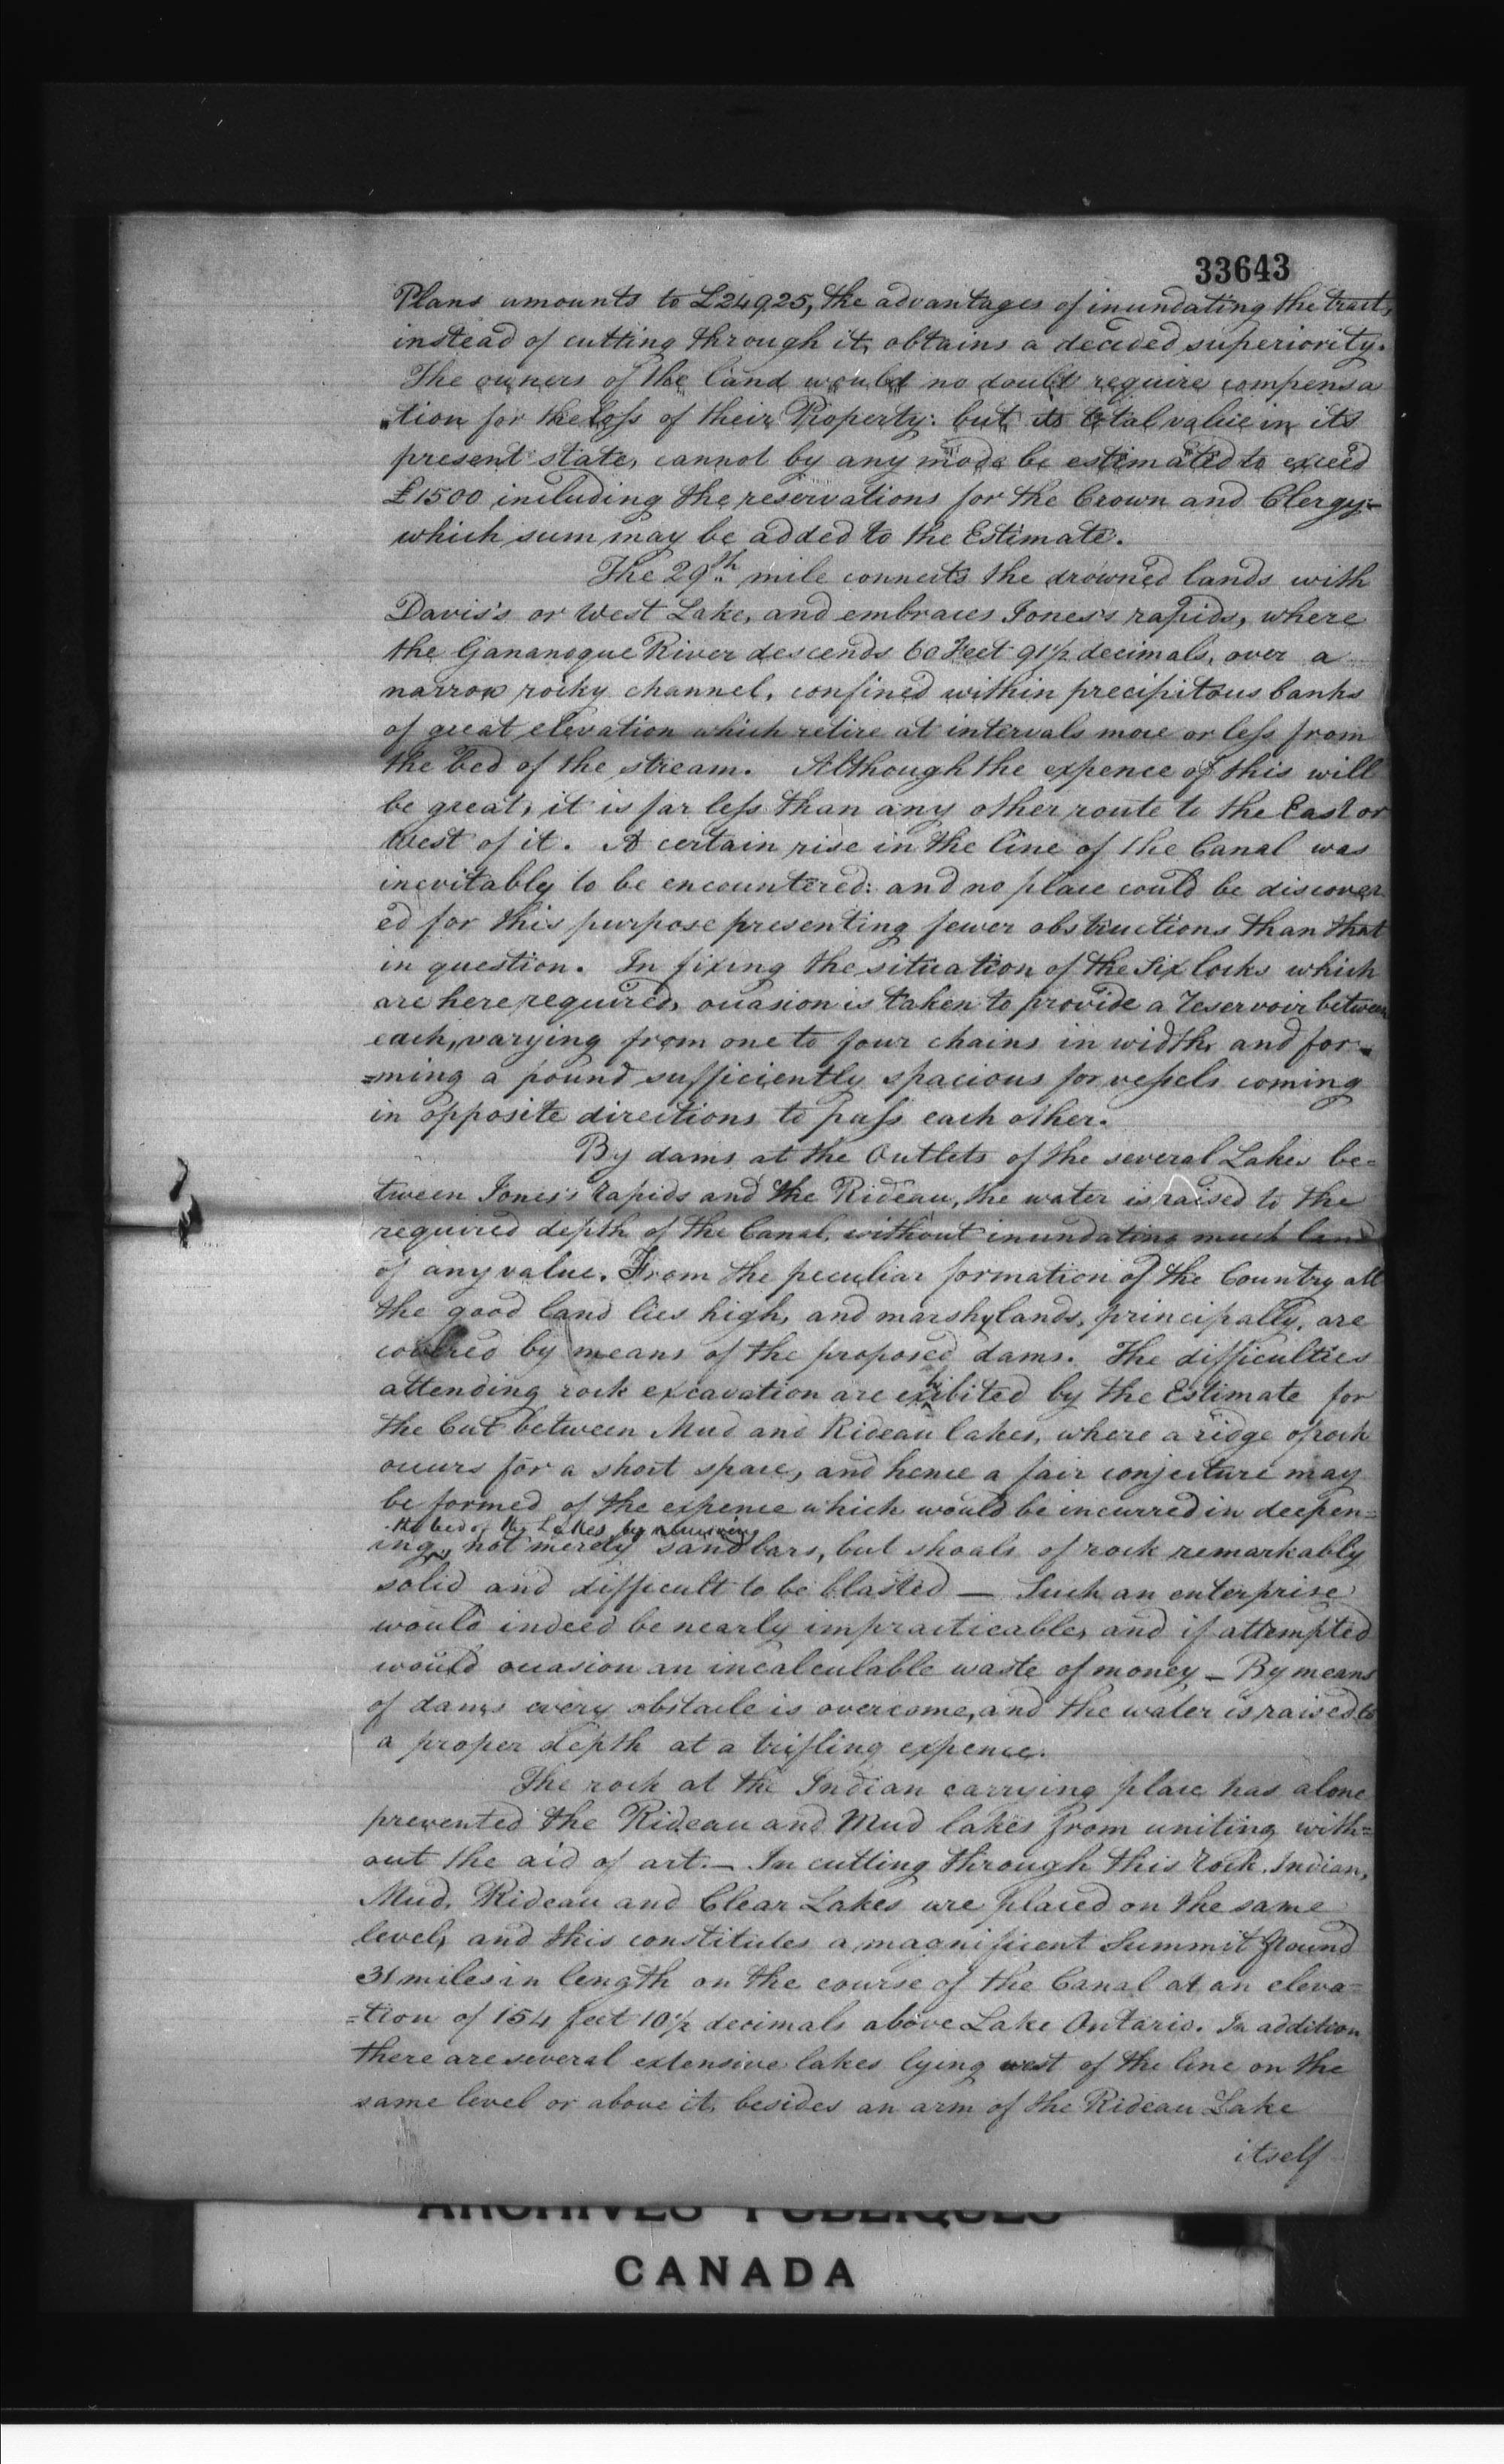 33643
Plans amounts to £24925, the advantages of inundating the tract,
instead of cutting through it, obtains a decided superiority.
The owners of the land would no doubt require compensa
"tion for the loss of their Property: but its total value in its
present state, cannot by any mode be estimated to exceed
£1500 including the reservations for the Crown and Clergy:-
which sum may be added to the Estimate.
The 29th mile connects the drowned lands with
Davis's or West Lake, and embraces Jones's rapids, where
the Gananoque River descends 60 Feet 9 1/2 decimals, over a
narrow rocky channel, confined within precipitous banks
of great elevation which retire at intervals more or less from
the bed of the stream. Although the expence of this will
be great, it is far less than any other route to the East or
West of it. A certain rise in the line of the Canal was
inevitably to be encountered: and no place could be discover
ed for this purpose presenting fewer obstructions than that
in question. In fixing the situation of the Six locks which
are here required, occasion is taken to provide a Reservoir between
each, varying from one to four chains in width, and for=
=ming a pound sufficiently spacious for vessels coming
in opposite directions to pass each other.
By dams at the Outlets of the several Lakes be=
tween Jones's rapids and the Rideau, the water is raised to the
required depth of the Canal, without inundating much land
of any value. From the peculiar formation of the Country all
the good land lies high, and marshy lands, principally, are
covered by means of the proposed dams. The difficulties
attending rock excavation are exhibited by the Estimate for
the Cut between Mud and Rideau lakes, where a ridge of rock
occurs for a short space, and hence a fair conjecture may
be formed of the expence which would be incurred in deepen=
the bed of the Lakes by removing
ing, not merely sand bars, but shoals of rock remarkably
solid and difficult to be blasted — Such an enterprise
would indeed be nearly impracticable, and if attempted
would occasion an incalculable waste of money — By means
of dams every obstacle is overcome, and the water is raised to
a proper depth at a trifling expence.
The rock at the Indian carrying place has alone
prevented the Rideau and Mud lakes from uniting with=
out the aid of art. — In cutting through this rock, Indian,
Mud, Rideau and Clear Lakes are placed on the same
level, and this constitutes a magnificent Summit Pound
31 miles in length on the course of the Canal at an eleva=
=tion of 154 feet 10 1/2 decimals above Lake Ontario. In addition
there are several extensive lakes lying west of the line on the
same level or above it, besides an arm of the Rideau Lake
itself
ARCHIVES PUBLIQUES
CANADA